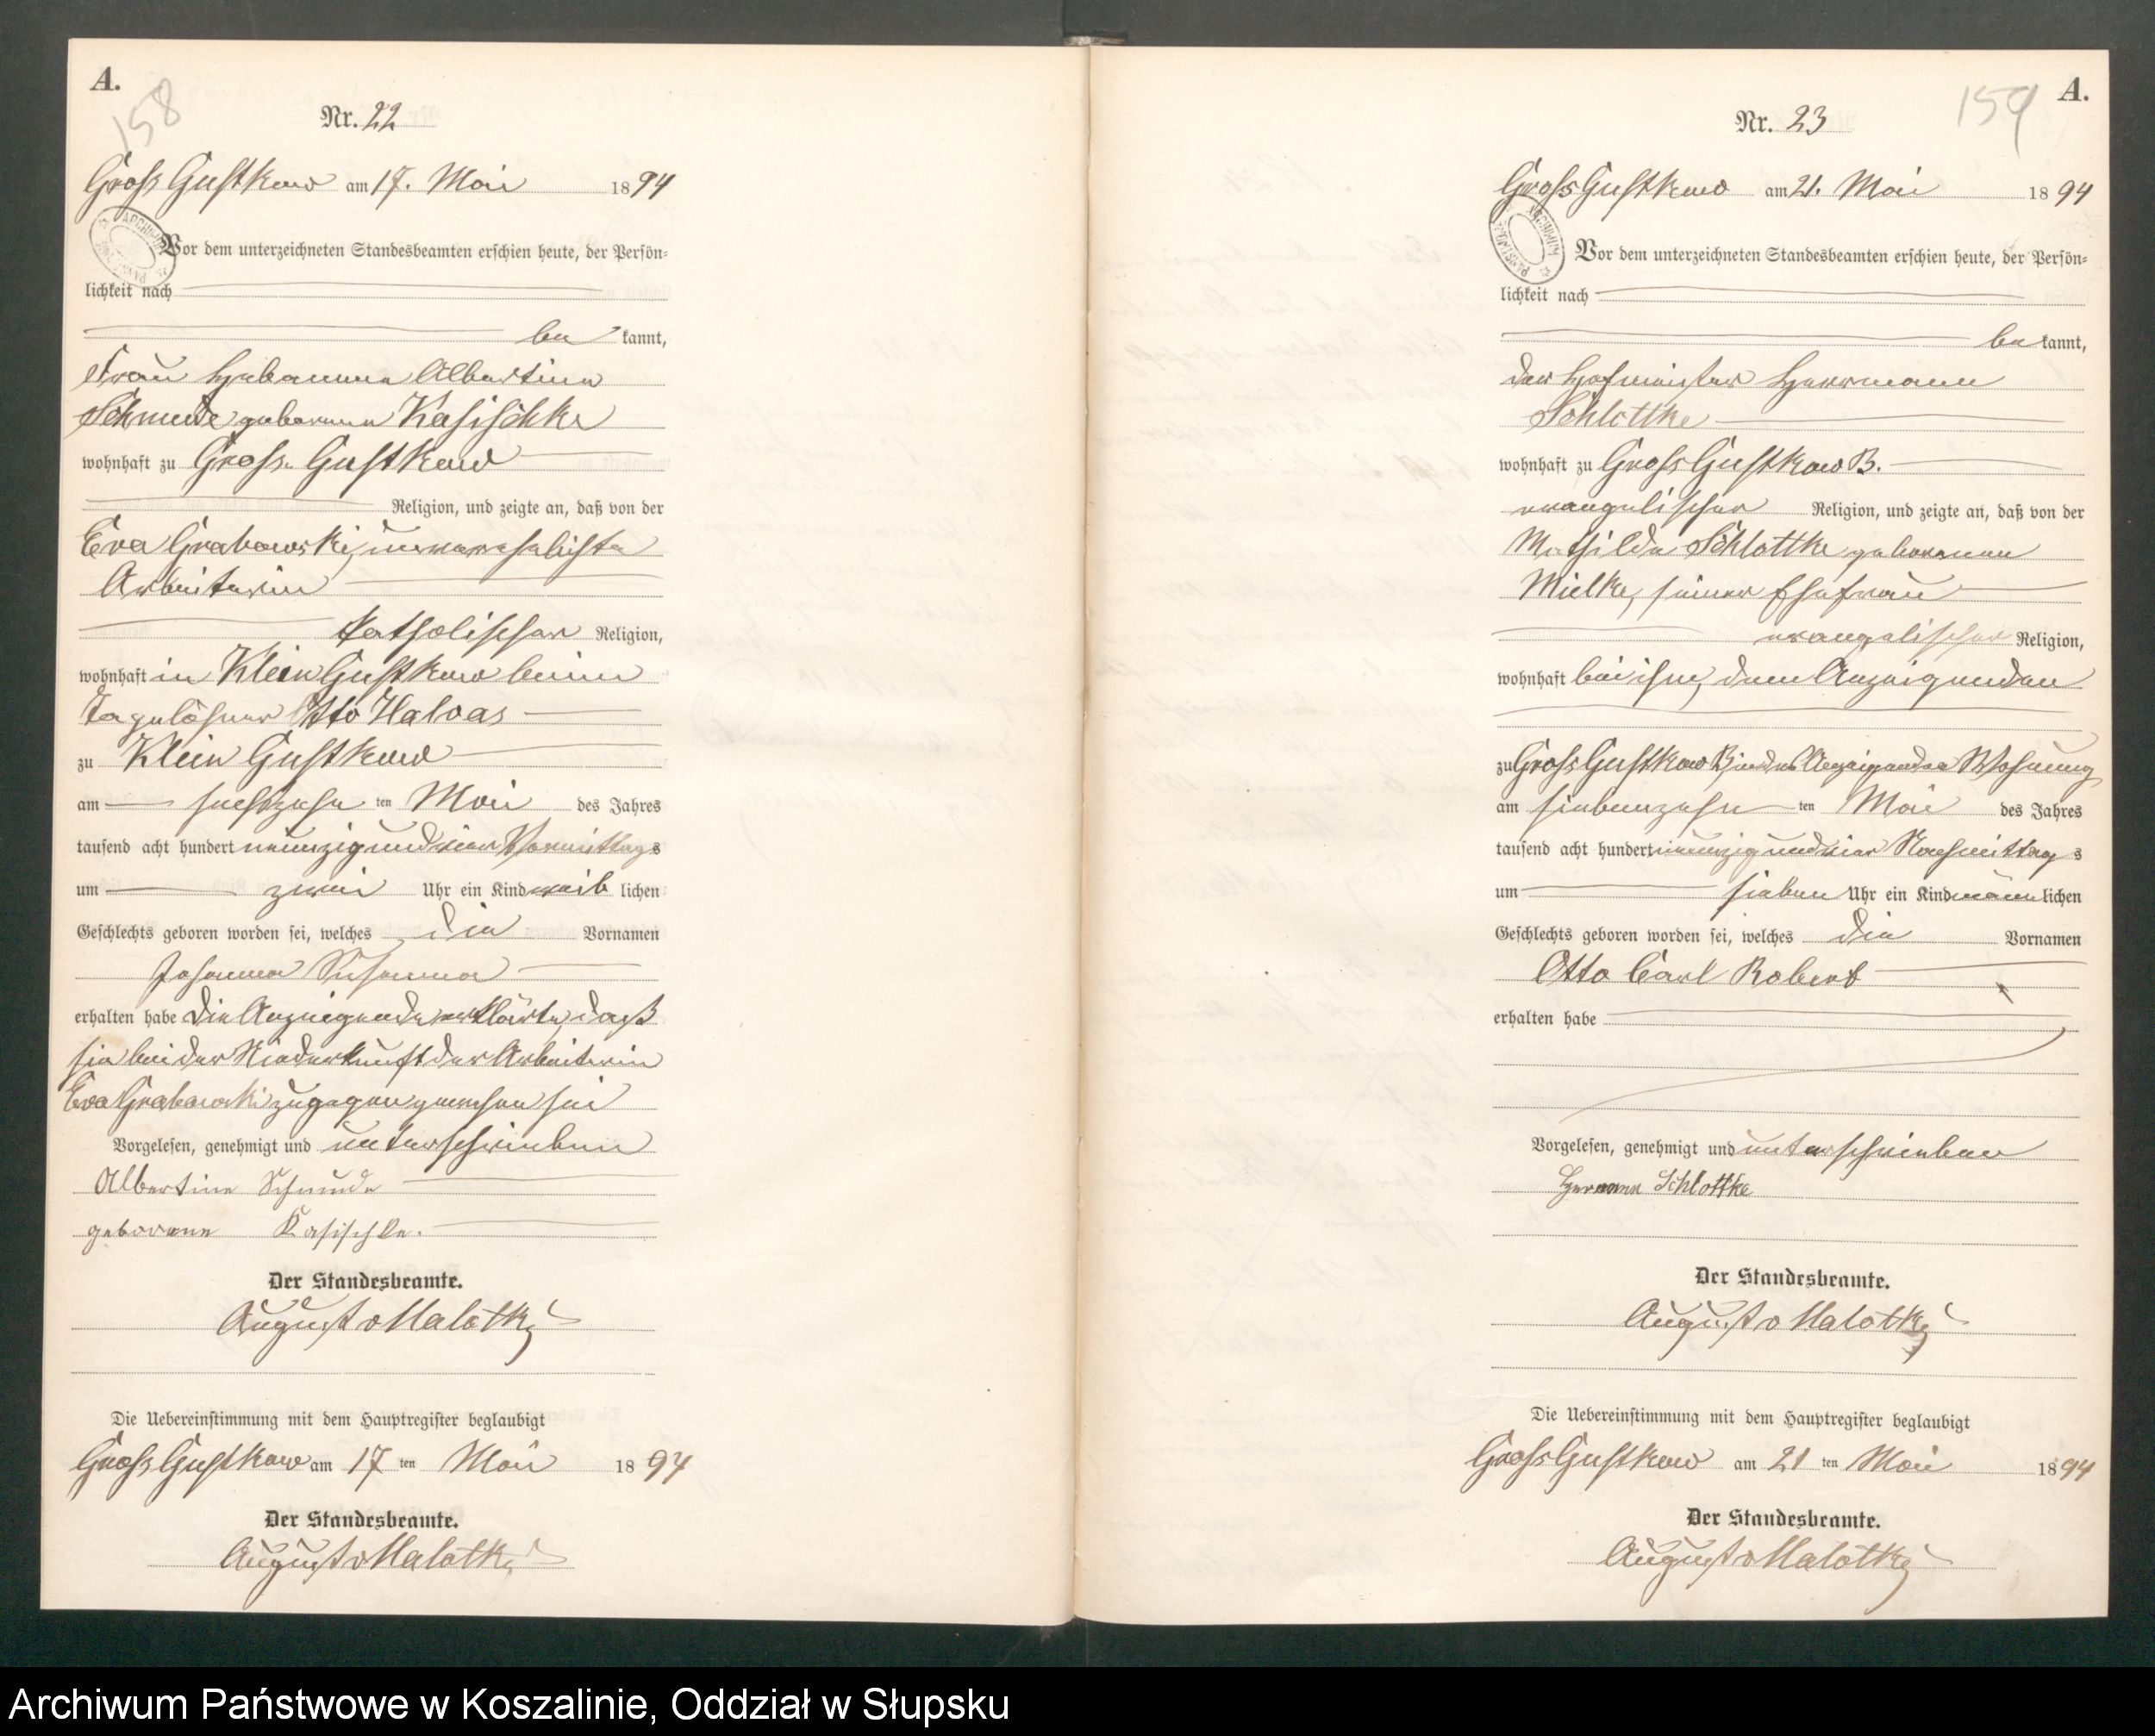 A.
158
Nr. 22
Gross Gustkow am 17. Mai 1894
Vor dem unterzeichneten Standesbeamten erschien heute, der Persön-
lichkeit nach
be kannt,
Frau Hebamme Albertine
Schmude geborene Kasischke
wohnhaft zu Gross Gustkow
Religion, und zeigte an, daß von der
Eva Grabowski, unverehelichte
Arbeiterin
katholischer Religion,
wohnhaft in Klein Gustkow beim
Tagelöhner Otto Halvas
zu Klein Gustkow
am sechszehn ten Mai des Jahres
tausend acht hundert neunzig und vier Vormittags
um zwei Uhr ein Kind weib lichen
Geschlechts geboren worden sei, welches die Vornamen
Johanna Susanna
erhalten habe Die Anzeigende erklärte, daß
sie bei der Niederkunft der Arbeiterin
Eva Grabowski zugegen gewesen sei
Vorgelesen, genehmigt und unterschrieben
Albertine Schmude
geborene Kasischke.
Der Standesbeamte.
August v Malotky
Die Uebereinstimmung mit dem Hauptregister beglaubigt
Gross Gustkow am 17 ten Mai 1894
Der Standesbeamte.
August v Malotky
A.
159
Nr. 23
Gross Gustkow am 21. Mai 1894
Vor dem unterzeichneten Standesbeamten erschien heute, der Persön-
lichkeit nach
be kannt,
der Hofmeister Herrmann
Schlottke
wohnhaft zu Gross Gustkow B.
evangelischer Religion, und zeigte an, daß von der
Mathilde Schlottke geborenen
Mielke, seiner Ehefrau
evangelischer Religion,
wohnhaft bei ihm, dem Anzeigenden
zu Gross Gustkow B, in des Anzeigenden Wohnung
am siebenzehn ten Mai des Jahres
tausend acht hundert neunzig und vier Nachmittags
um sieben Uhr ein Kind männ lichen
Geschlechts geboren worden sei, welches die Vornamen
Otto Carl Robert
erhalten habe
Vorgelesen, genehmigt und unterschrieben
Hermann Schlottke
Der Standesbeamte.
August v Malotky
Die Uebereinstimmung mit dem Hauptregister beglaubigt
Gross Gustkow am 21 ten Mai 1894
Der Standesbeamte.
August v Malotky
Archiwum Państwowe w Koszalinie, Oddział w Słupsku